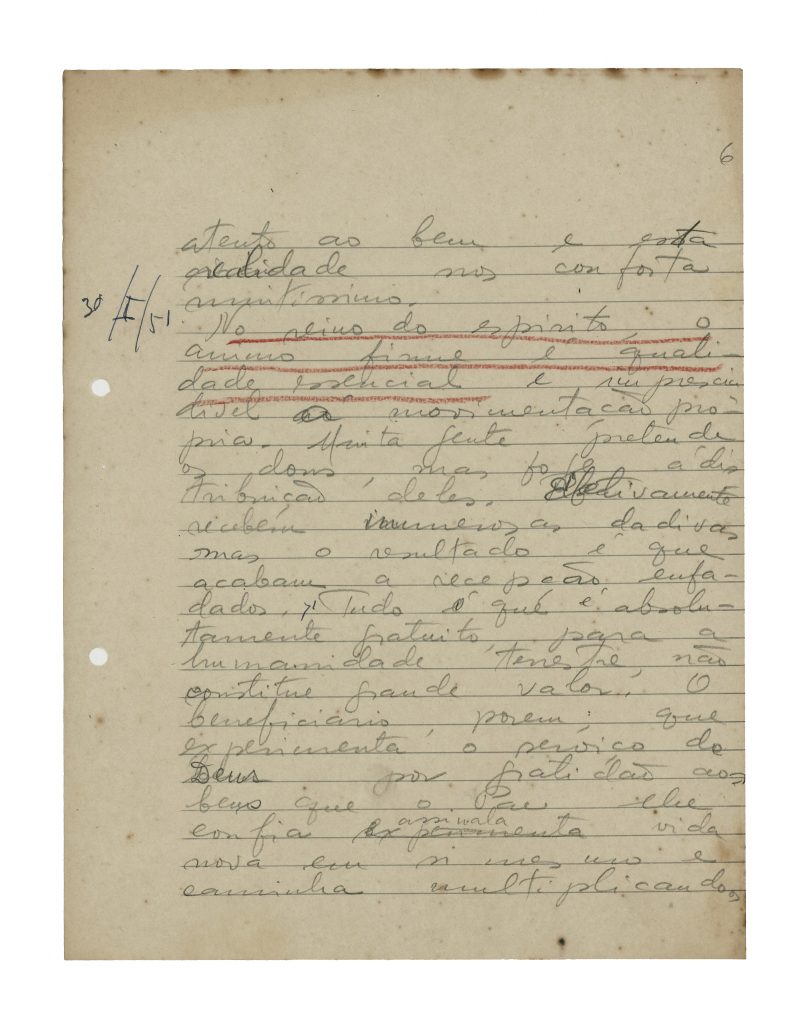 6
atento ao bem e esta
realidade nos conforta
muitissimo.
30/I/51
No reino do espirito, o
animo firme é quali-
dade essencial e imprescin
divel á movimentação pró-
pria. Muita gente pretende
os dons, mas foge á dis
tribuição deles. Efetivamente
recebem inumerosas dadivas
mas o resultado é que
acabam a recepção enfa-
dados. Tudo o que é absolu-
tamente gratuito, para a
humanidade terrestre, não
constitue grande valor. O
beneficiário, porem, que
experimenta o serviço de
Deus por gratidão aos
bens que o Pai lhe
confia assinala vida
nova em si mesmo e
caminha multiplicando os